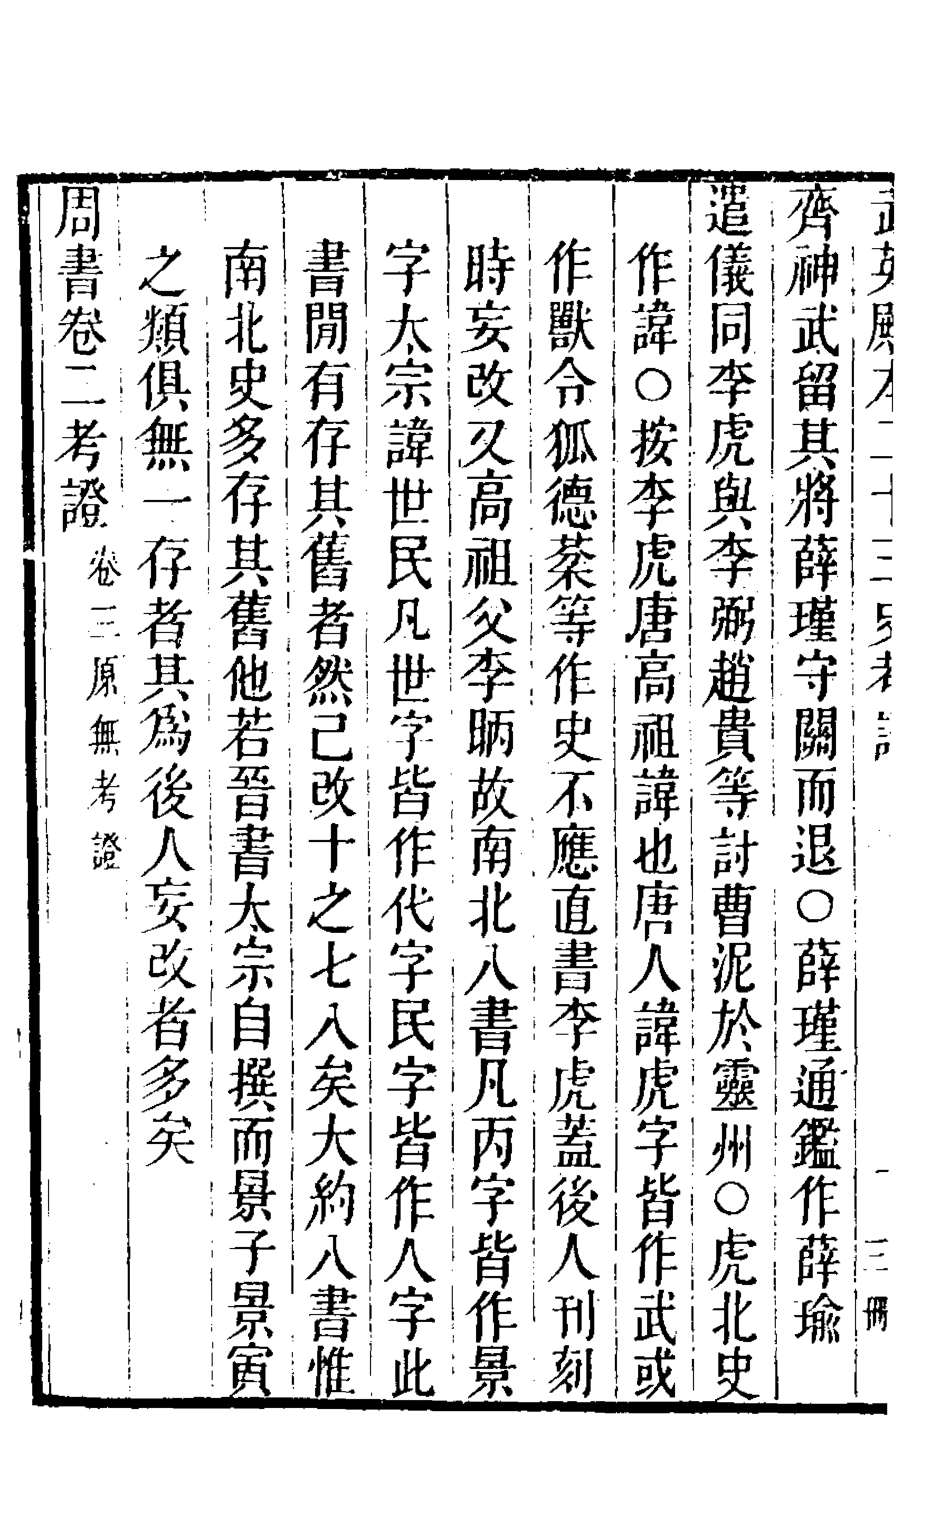 武英殿本二十三史考證 一 三 冊
齊神武留其將薛瑾守關而退○薛瑾通鑑作薛瑜
遣儀同李虎與李弼趙貴等討曹泥於靈州○虎北史
作諱○按李虎唐高祖諱也唐人諱虎字皆作武或
作獸令狐德棻等作史不應直書李虎蓋後人刊刻
時妄改又高祖父李昞故南北八書凡丙字皆作景
字太宗諱世民凡世字皆作代字民字皆作人字此
書閒有存其舊者然已改十之七八矣大約八書惟
南北史多存其舊他若晉書太宗自撰而景子景寅
之類俱無一存者其爲後人妄改者多矣
周書卷二考證 卷三原無考證